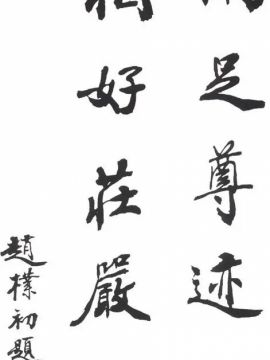 足尊迹
好莊嚴
趙樸初題